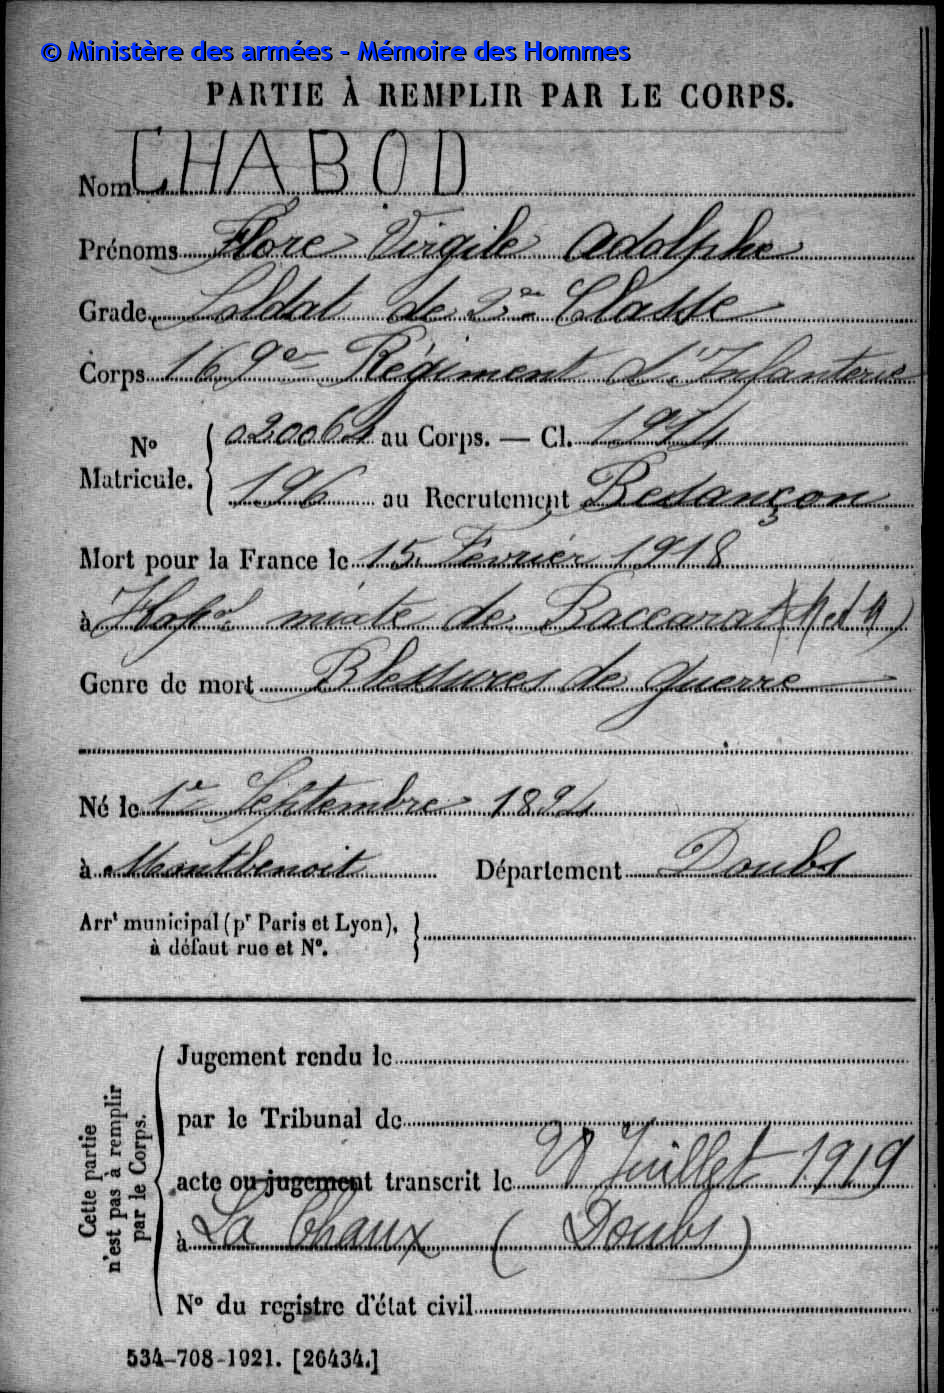 © Ministère des armées - Mémoire des Hommes
PARTIE À REMPLIR PAR LE CORPS.
Nom CHABOD
Prénoms Flore Virgile Adolphe
Grade Soldat de 2e Classe
Corps 169e Régiment d'Infanterie
No Matricule. au Corps. — Cl. 1914
196 au Recrutement Besançon
Mort pour la France le 15 Février 1918
à Hopal mixte de Baccarat (M et M)
Genre de mort Blessures de guerre
Né le 1er Septembre 1894
à Montbenoit Département Doubs
Arrt municipal (pr Paris et Lyon),
à défaut rue et No.
Cette partie n'est pas à remplir par le Corps.
Jugement rendu le
par le Tribunal de
acte ou jugement transcrit le Juillet 1919
à La Chaux (Doubs)
No du registre d'état civil
534-708-1921. [26434.]